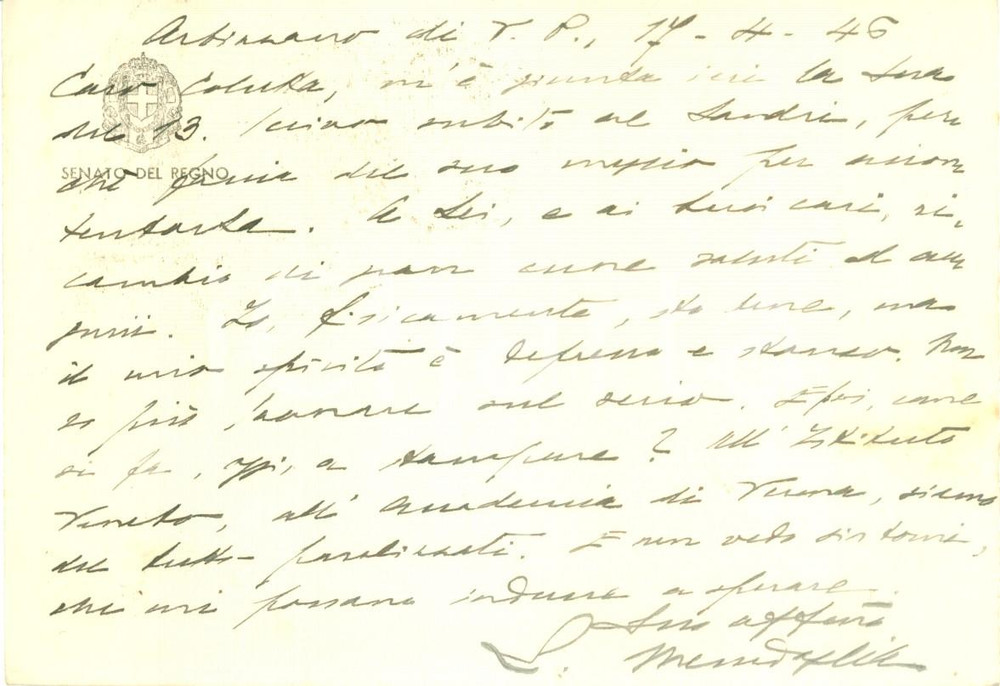 Arbizzano di V. P., 17 - 4 - 46
Caro Coletta, m'è giunta ieri la Sua
del 13. Scrivo subito al Sandri, per
SENATO DEL REGNO
che faccia del suo meglio per accon
tentarla. A Lei, e ai Suoi cari, ri,
cambio di gran cuore saluti ed au
guri. Io, fisicamente, sto bene, ma
il mio spirito è depresso e stanco. Non
so più lavorare sul serio. E poi, come
si fa, oggi, a stampare? All' Istituto
Veneto, all' Accademia di Verona, siamo
del tutto paralizzati. E non vedo sintomi,
che mi possano indurre a sperare.
Suo aff.mo
L. Messedaglia